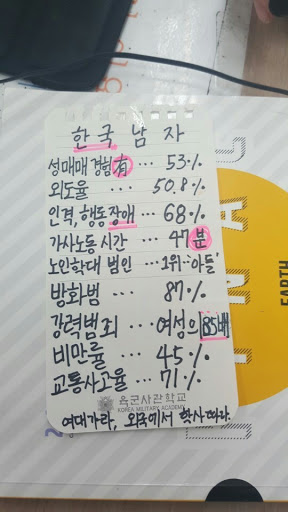 한국 남자
성매매 경험 有 ... 53.%
외도율 ... 50.8%
인격, 행동장애 ... 68%
가사노동 시간 ... 47분
노인학대 범인 ... 1위··'아들'
방화범 ... 87.%
강력범죄 ... 여성의 85배
비만률 ... 45%
교통사고율 ... 71%
육군사관학교
KOREA MILITARY ACADEMY
여대가라, 외국에서 학사따라.
EARTH